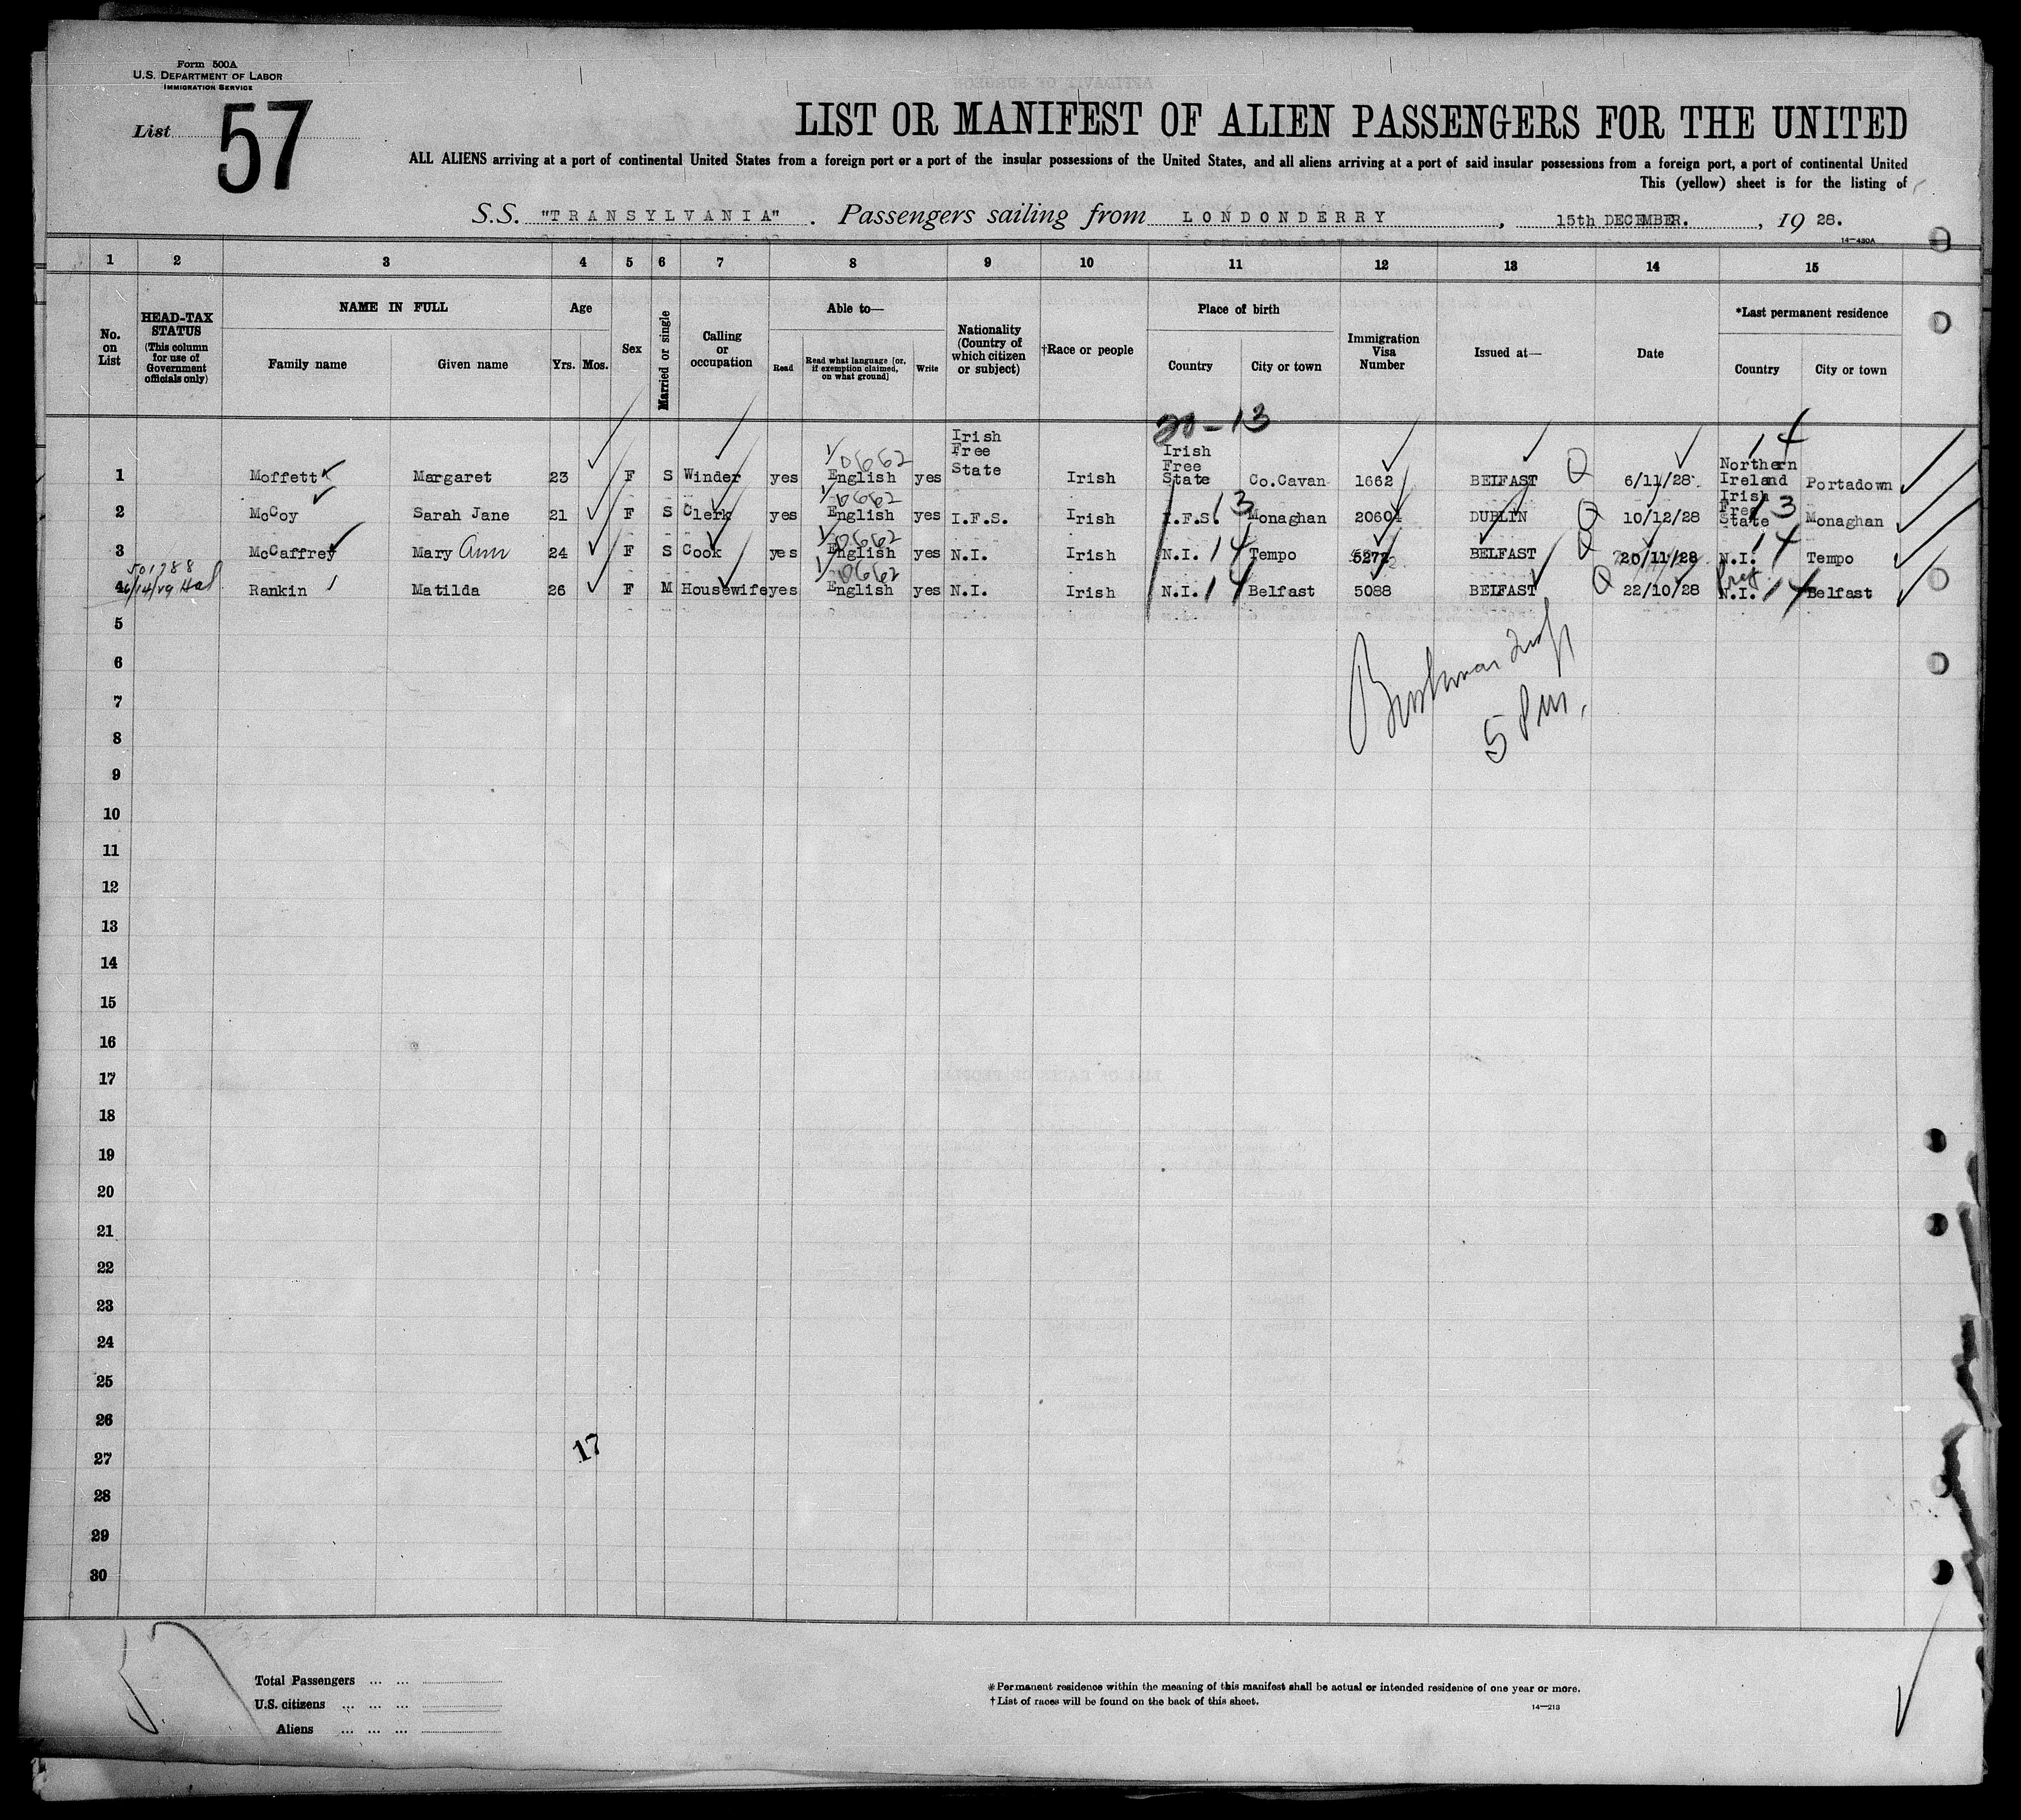 Form 500A
U.S. DEPARTMENT OF LABOR
IMMIGRATION SERVICE
List 57
LIST OR MANIFEST OF ALIEN PASSENGERS FOR THE UNITED
ALL ALIENS arriving at a port of continental United States from a foreign port or a port of the insular possessions of the United States, and all aliens arriving at a port of said insular possessions from a foreign port, a port of continental United
This (yellow) sheet is for the listing of
S.S. "TRANSYLVANIA". Passengers sailing from LONDONDERRY, 15th DECEMBER., 19 28.
14—430A
1 2 3 4 5 6 7 8 9 10 11 12 13 14 15
No. on List
HEAD-TAX STATUS (This column for use of Government officials only)
NAME IN FULL
Family name Given name
Age
Yrs. Mos.
Sex
Married or single
Calling or occupation
Able to—
Read Read what language [or, if exemption claimed, on what ground] Write
Nationality (Country of which citizen or subject)
†Race or people
Place of birth
Country City or town
Immigration Visa Number
Issued at—
Date
*Last permanent residence
Country City or town
20-13
1 Moffett Margaret 23 F S Winder yes English yes Irish Free State Irish Irish Free State Co.Cavan 1662 BELFAST Q 6/11/28 Northern Ireland 14 Portadown
2 McCoy Sarah Jane 21 F S Clerk yes English yes I.F.S. Irish I.F.S. 13 Monaghan 20604 DUBLIN Q 10/12/28 Irish Free State 13 Monaghan
3 McCaffrey Mary Ann 24 F S Cook yes English yes N.I. Irish N.I. 14 Tempo BELFAST Q 20/11/28 N.I. 14 Tempo
501788
4 Rankin Matilda 26 F M Housewife yes English yes N.I. Irish N.I. 14 Belfast 5088 BELFAST Q 22/10/28 N.I. 14 Belfast
5
6
7
8
9
10
11
12
13
14
15
16
17
18
19
20
21
22
23
24
25
26
17
27
28
29
30
Total Passengers ... ...
U.S. citizens ... ... ...
Aliens ... ... ...
*Permanent residence within the meaning of this manifest shall be actual or intended residence of one year or more.
†List of races will be found on the back of this sheet.
14—213